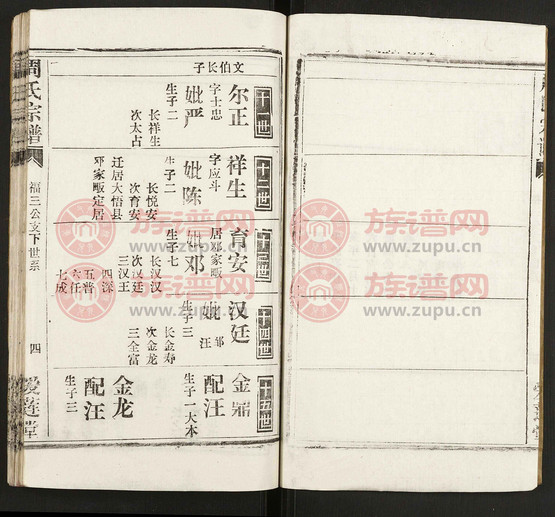 周氏宗谱
福三公支下世系
四
爱莲堂
文伯长子
十一世
尔正
字士忠
妣严
生子二
长祥生
次太占
十二世
祥生
字应斗
妣陈
生子二
长悦安
次育安
迁居大悟县
邓家畈定居
十三世
育安
居邓家畈
妣邓
生子七
长汉汉
次汉廷
三汉王
四深
五普
六任
七成
十四世
汉廷
妣邹
汪
生子三
长金寿
次金龙
三全富
十五世
金鼎
配汪
生子一大本
金龙
配汪
生子三
族谱网
www.zupu.cn
族谱网
www.zupu.cn
族谱网
www.zupu.cn
族谱网
www.zupu.cn